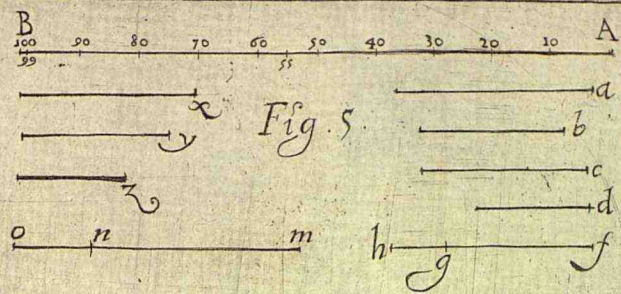 B A
100 90 80 70 60 50 40 30 20 10
99 55
x a
Fig. 5.
y b
z c
d
o n m h g f